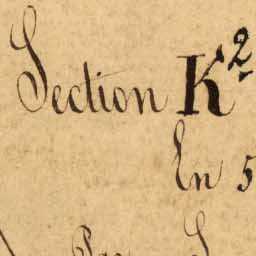 Section K²
En 5